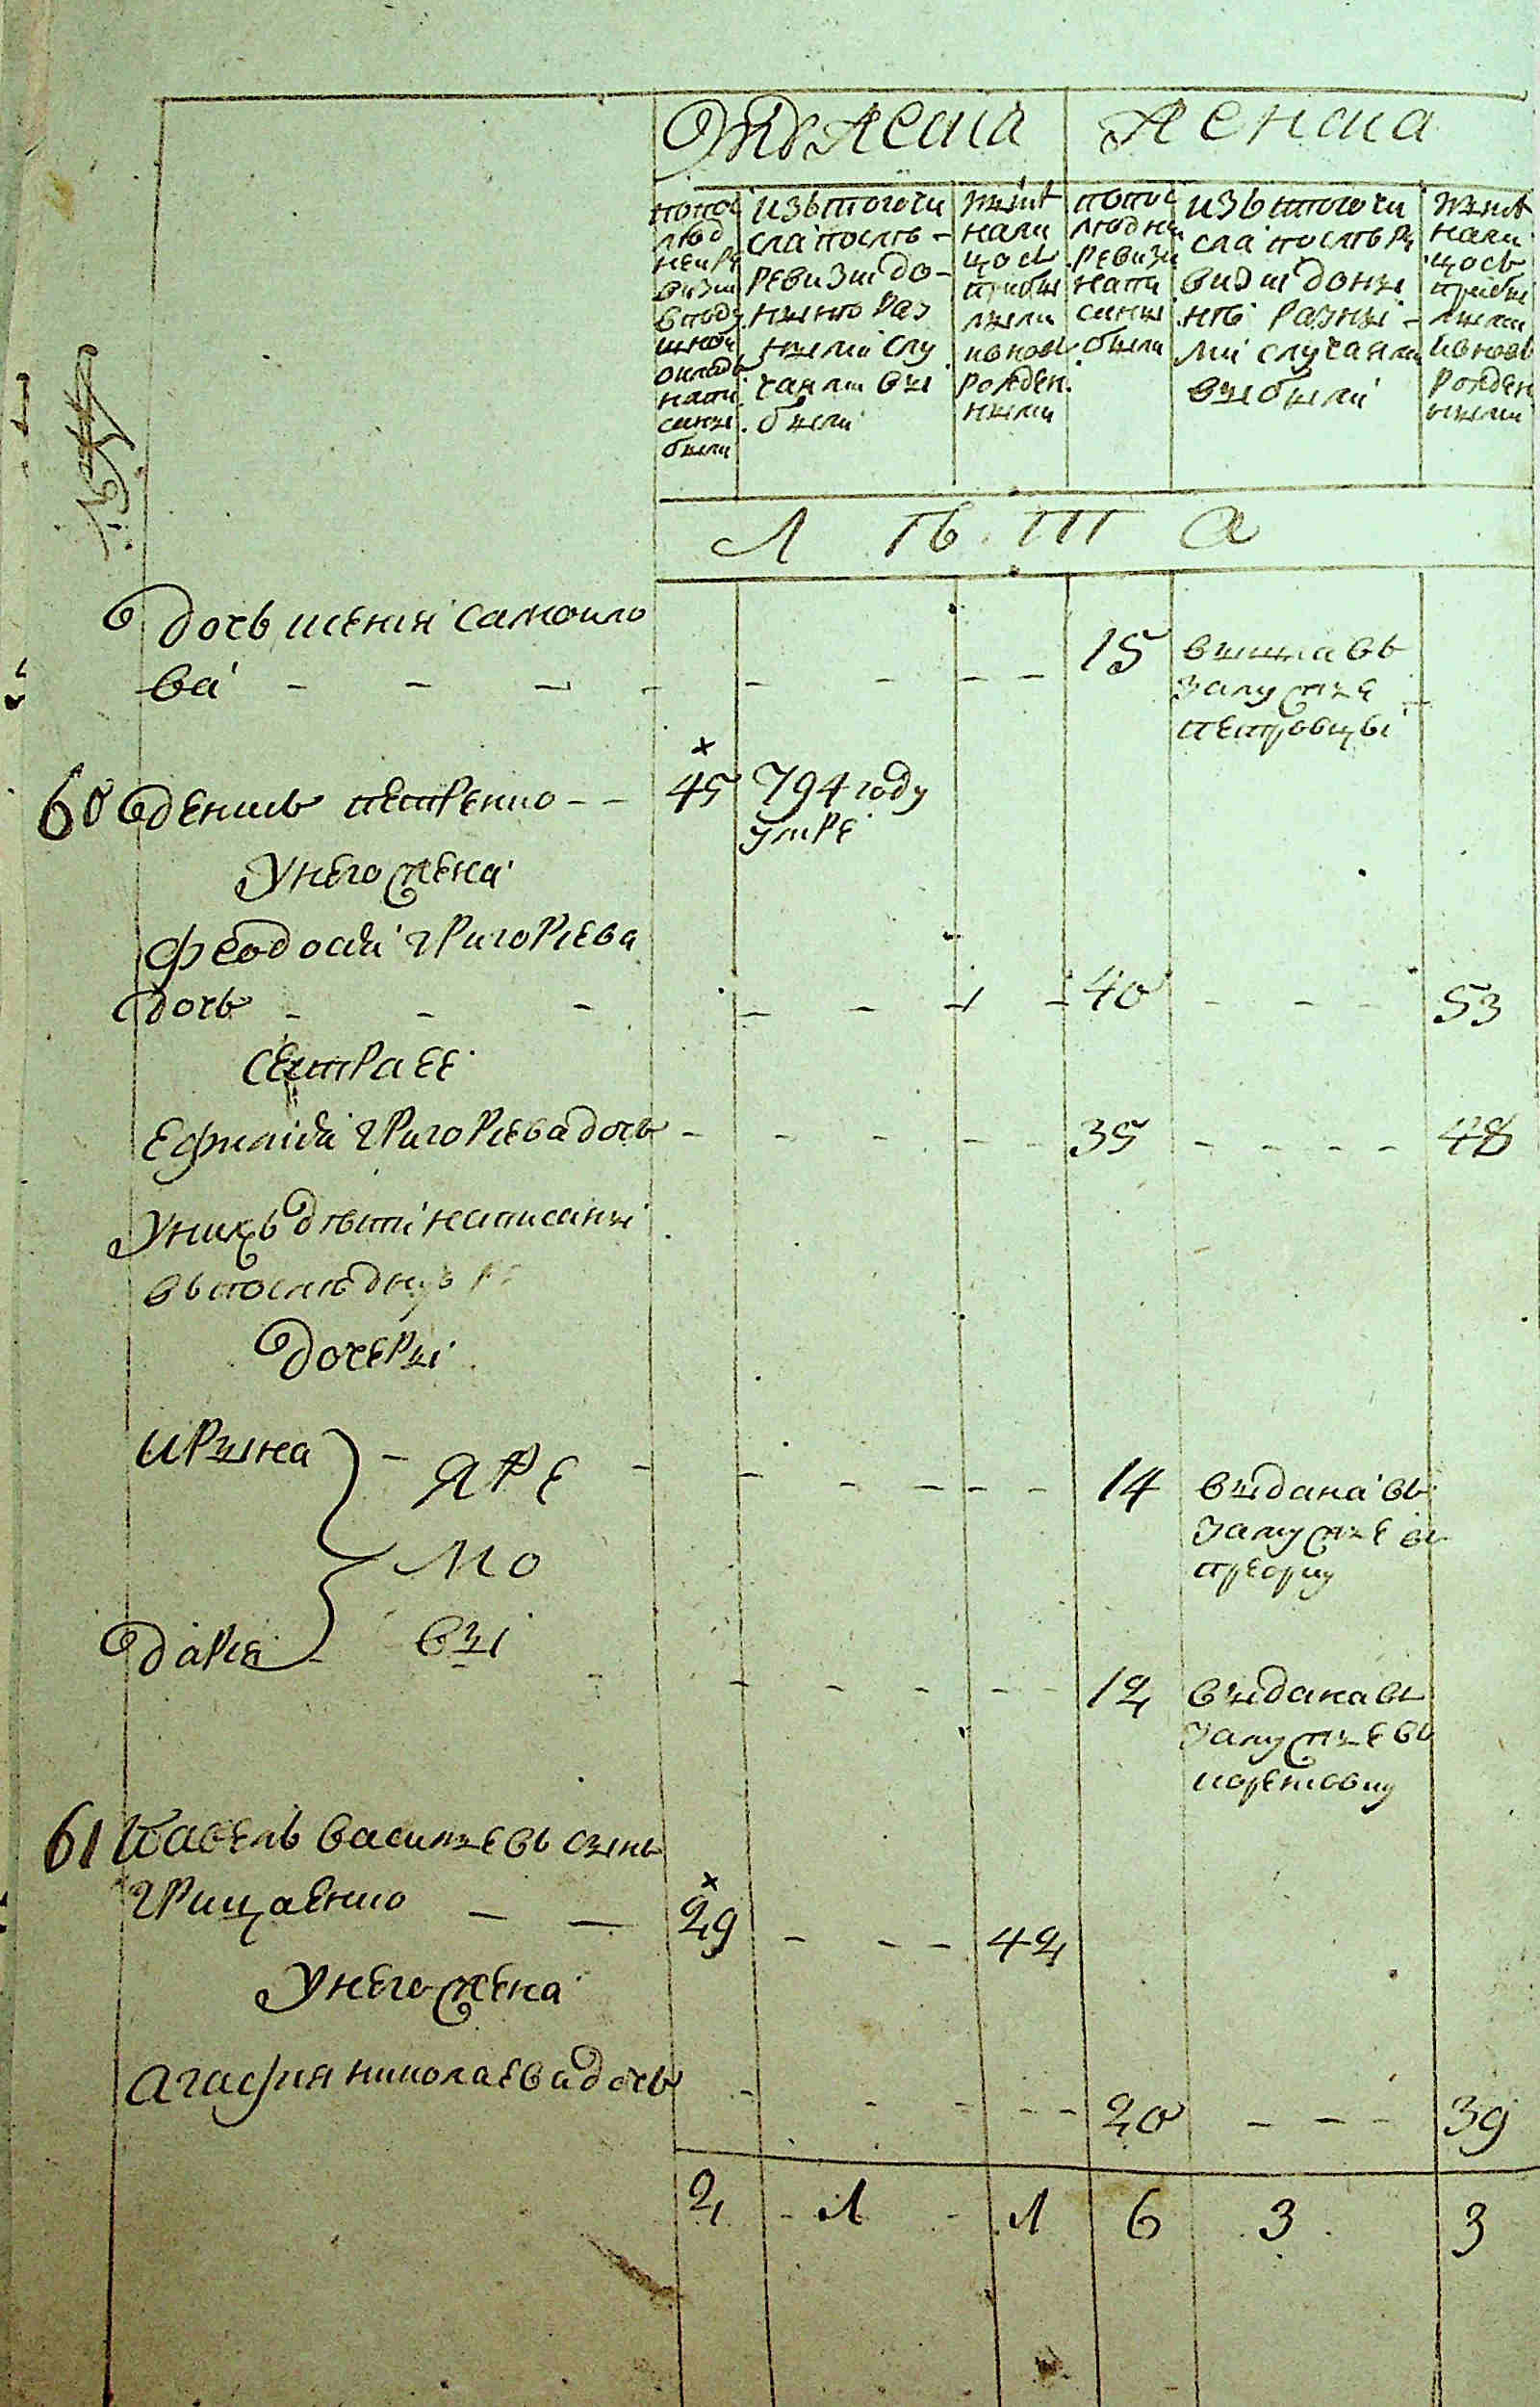 Мужеска
Женска
попос
люд
ней ре
визіи
в поду
шном
окладѣ
напи
саны
были
изъ того чи
сла послѣ
ревизіи до
ныне раз
ными слу
чаями вы
были
ныне
нали
цосъ
прибы
лыми
и новь
рожден
ными
попос
людней
ревизіи
напи
саны
были
изъ того чи
сла послѣ ре
визіи доны
нѣ разны
ми случаями
выбыли
ныне
нали
цось
прибы
лыми
и новь
рожден
ными
Л ѣ т а
дочь ксенія самойло
ва 15 вышла въ
замужже
петровцы
60 денисъ петренко 45 794 году
умре
У него жена
феодосія григориева
дочь 40 53
Сестра ее
Ефимія григориева дочь 35 48
У нихъ дѣти написаны
въ последную
дочеры
ирына 14 выдана въ
замужже въ
ЯРЕ
МО
вы
дария 12 выдана въ
замужже въ
61 Павелъ василиевъ сынъ
грищаенко 29 42
У него жена
агафия николаева дочь 20 39
2 1 1 6 3 3